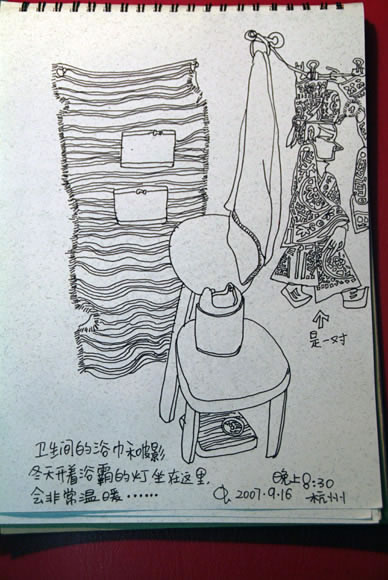 是一对
卫生间的浴巾和皮影
冬天开着浴霸的灯坐在这里.
会非常温暖……
晚上8:30
2007.9.16 杭州